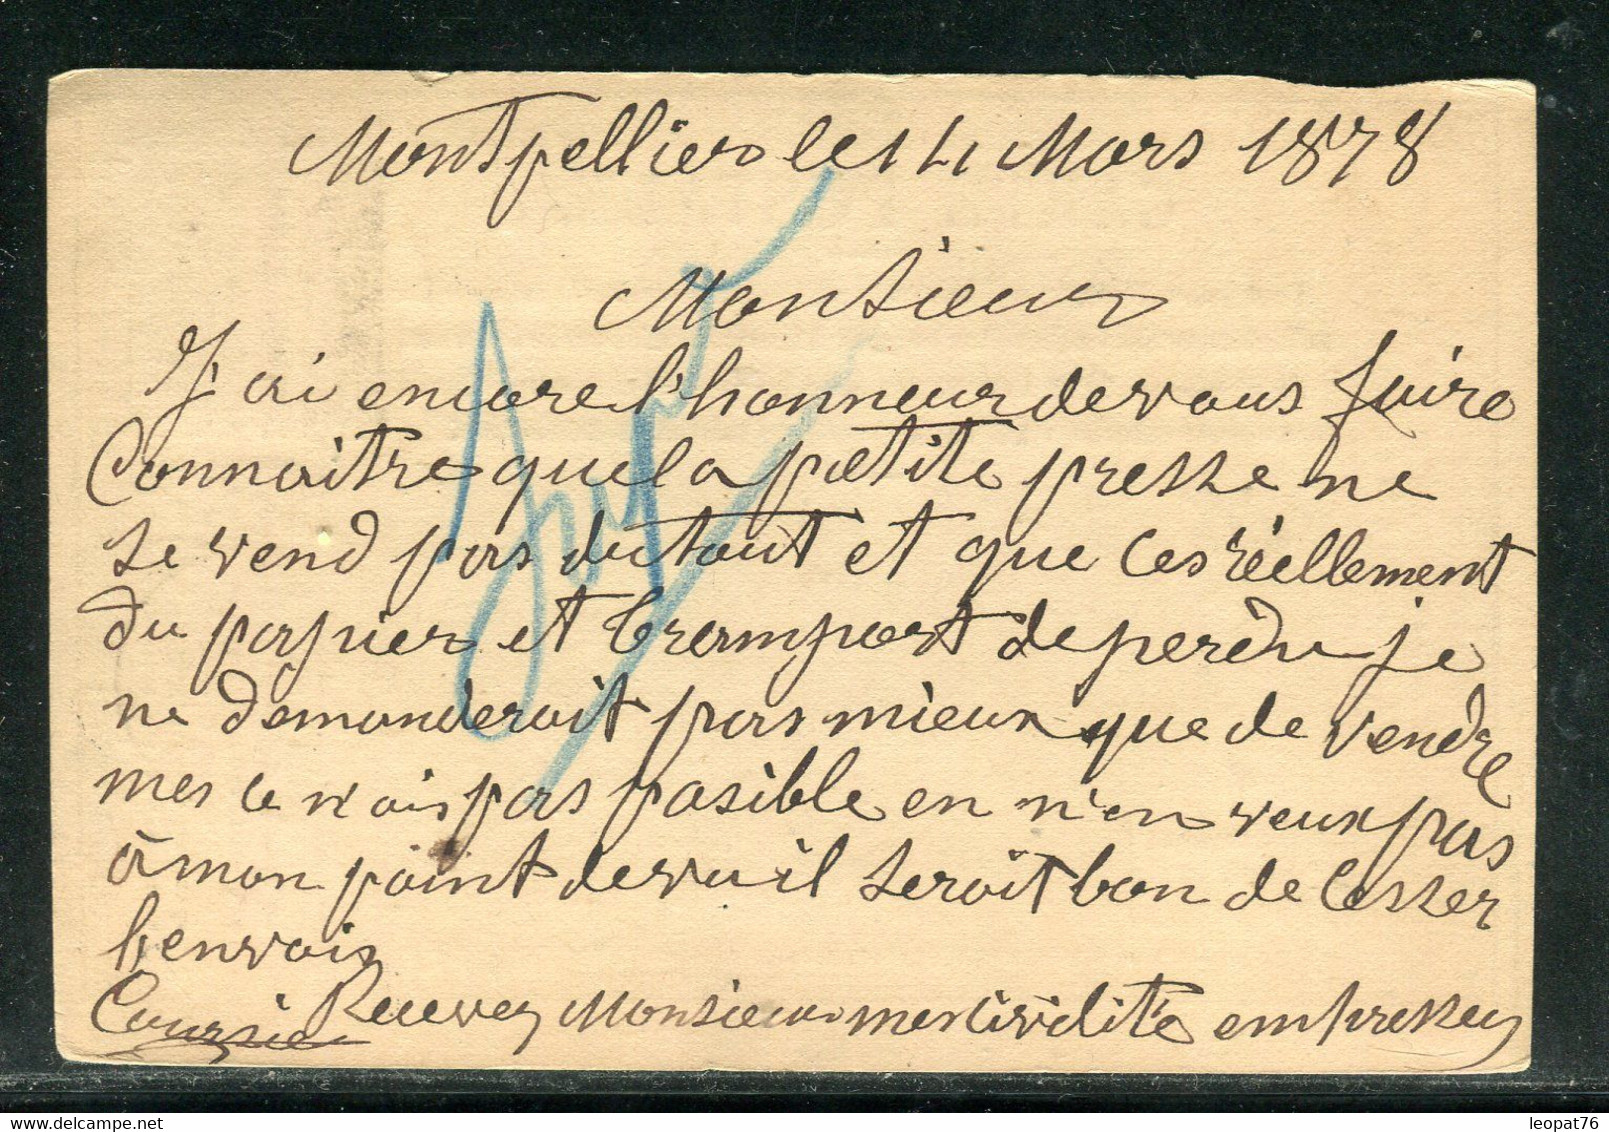 Montpellier le 14 Mars 1878
Monsieur
J'ai encore l'honneur de vous faire
Connaitre que la petite presse ne
se vend pas du tout et que ces réellement
du papier et tramport de perdu je
ne demanderait pas mieux que de vendre
mes ce n'ais pas posible en n'en veux pas
à mon point de vu il serait bon de cesser
l'envois
Recevez Monsieur mes civilité empressez
Coursier
leopat76